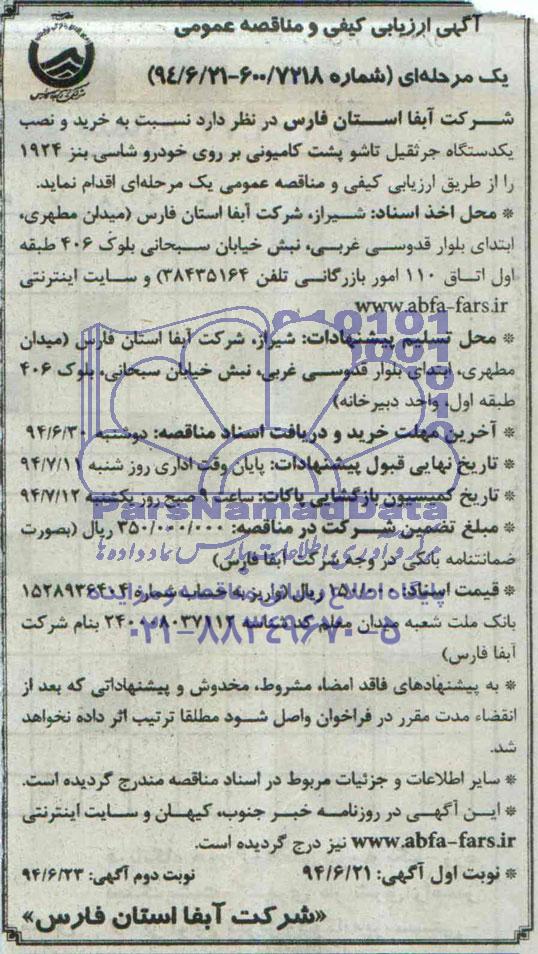 آگهی ارزیابی کیفی و مناقصه عمومی
یک مرحله‌ای (شماره ۶۰۰/۷۲۱۸-۹۴/۶/۲۱)
شرکت آبفا استان فارس در نظر دارد نسبت به خرید و نصب
یکدستگاه جرثقیل تاشو پشت کامیونی بر روی خودرو شاسی بنز ۱۹۲۴
را از طریق ارزیابی کیفی و مناقصه عمومی یک مرحله‌ای اقدام نماید.
* محل اخذ اسناد: شیراز، شرکت آبفا استان فارس (میدان مطهری،
ابتدای بلوار قدوسی غربی، نبش خیابان سبحانی بلوک ۴۰۶ طبقه
اول اتاق ۱۱۰ امور بازرگانی تلفن ۳۸۴۳۵۱۶۴) و سایت اینترنتی
www.abfa-fars.ir
* محل تسلیم پیشنهادات: شیراز، شرکت آبفا استان فارس (میدان
مطهری، ابتدای بلوار قدوسی غربی، نبش خیابان سبحانی، بلوک ۴۰۶
طبقه اول، واحد دبیرخانه)
* آخرین مهلت خرید و دریافت اسناد مناقصه: دوشنبه ۹۴/۶/۳۰
* تاریخ نهایی قبول پیشنهادات: پایان وقت اداری روز شنبه ۹۴/۷/۱۱
* تاریخ کمیسیون بازگشایی پاکات: ساعت ۹ صبح روز یکشنبه ۹۴/۷/۱۲
ParsNamadData
* مبلغ تضمین شرکت در مناقصه: ۳۵۰/۰۰۰/۰۰۰ ریال (بصورت
ضمانتنامه بانکی در وجه شرکت آبفا فارس)
* قیمت اسناد: ریال (واریز به حساب شماره ۱۵۲۸۹۳۶۴۰۴
بانک ملت شعبه میدان معلم کد شناسه بنام شرکت
آبفا فارس)
۰۲۱-۸۸۳۴۹۶۷۰-۵
* به پیشنهادهای فاقد امضا، مشروط، مخدوش و پیشنهاداتی که بعد از
انقضاء مدت مقرر در فراخوان واصل شود مطلقا ترتیب اثر داده نخواهد
شد.
* سایر اطلاعات و جزئیات مربوط در اسناد مناقصه مندرج گردیده است.
* این آگهی در روزنامه خبر جنوب، کیهان و سایت اینترنتی
www.abfa-fars.ir نیز درج گردیده است.
* نوبت اول آگهی: ۹۴/۶/۲۱ نوبت دوم آگهی: ۹۴/۶/۲۳
«شرکت آبفا استان فارس»